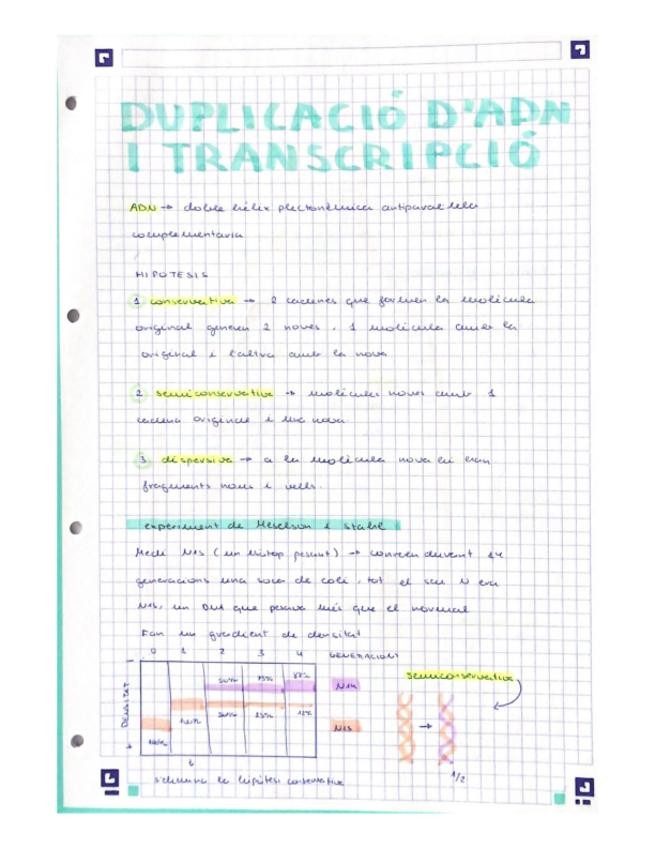 DUPLICACIÓ D'ADN
I TRANSCRIPCIÓ
ADN → doble hèlix plectonèmica antiparal·lela
complementaria
HIPOTESIS
1 conservativa → 2 cadenes que formen la molècula
original generen 2 noves. 1 molècula amb la
original i l'altra amb la nova
2 semiconservativa → molècules noves amb 1
cadena original i una nova
3 dispersiva → a la molècula nova hi han
fragments nous i vells.
experiment de Meselson i Stahl
Medi N15 (un isòtop pesant) → creixen durant 14
generacions una soca de coli, tot el seu N era
N15, un DNA que pesava més que el normal
Fan un gradient de densitat
0 1 2 3 4 GENERACIONS
DENSITAT
50% 75% 88% N14
100% 50% 25% 12% N15
100%
semiconservativa
1/2
s'elimina la hipòtesi conservativa